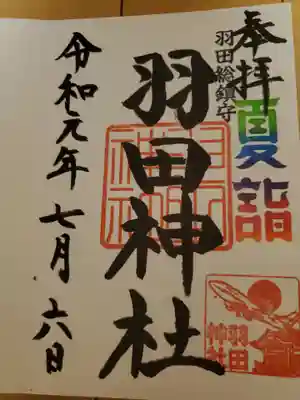 奉拝
夏詣
羽田総鎮守
羽田神社
令和元年七月六日
羽田
神社